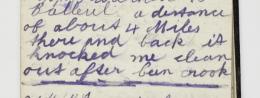 Bailleul a distance
of about 4 Miles
there and back it
knocked me clean
out after been crook